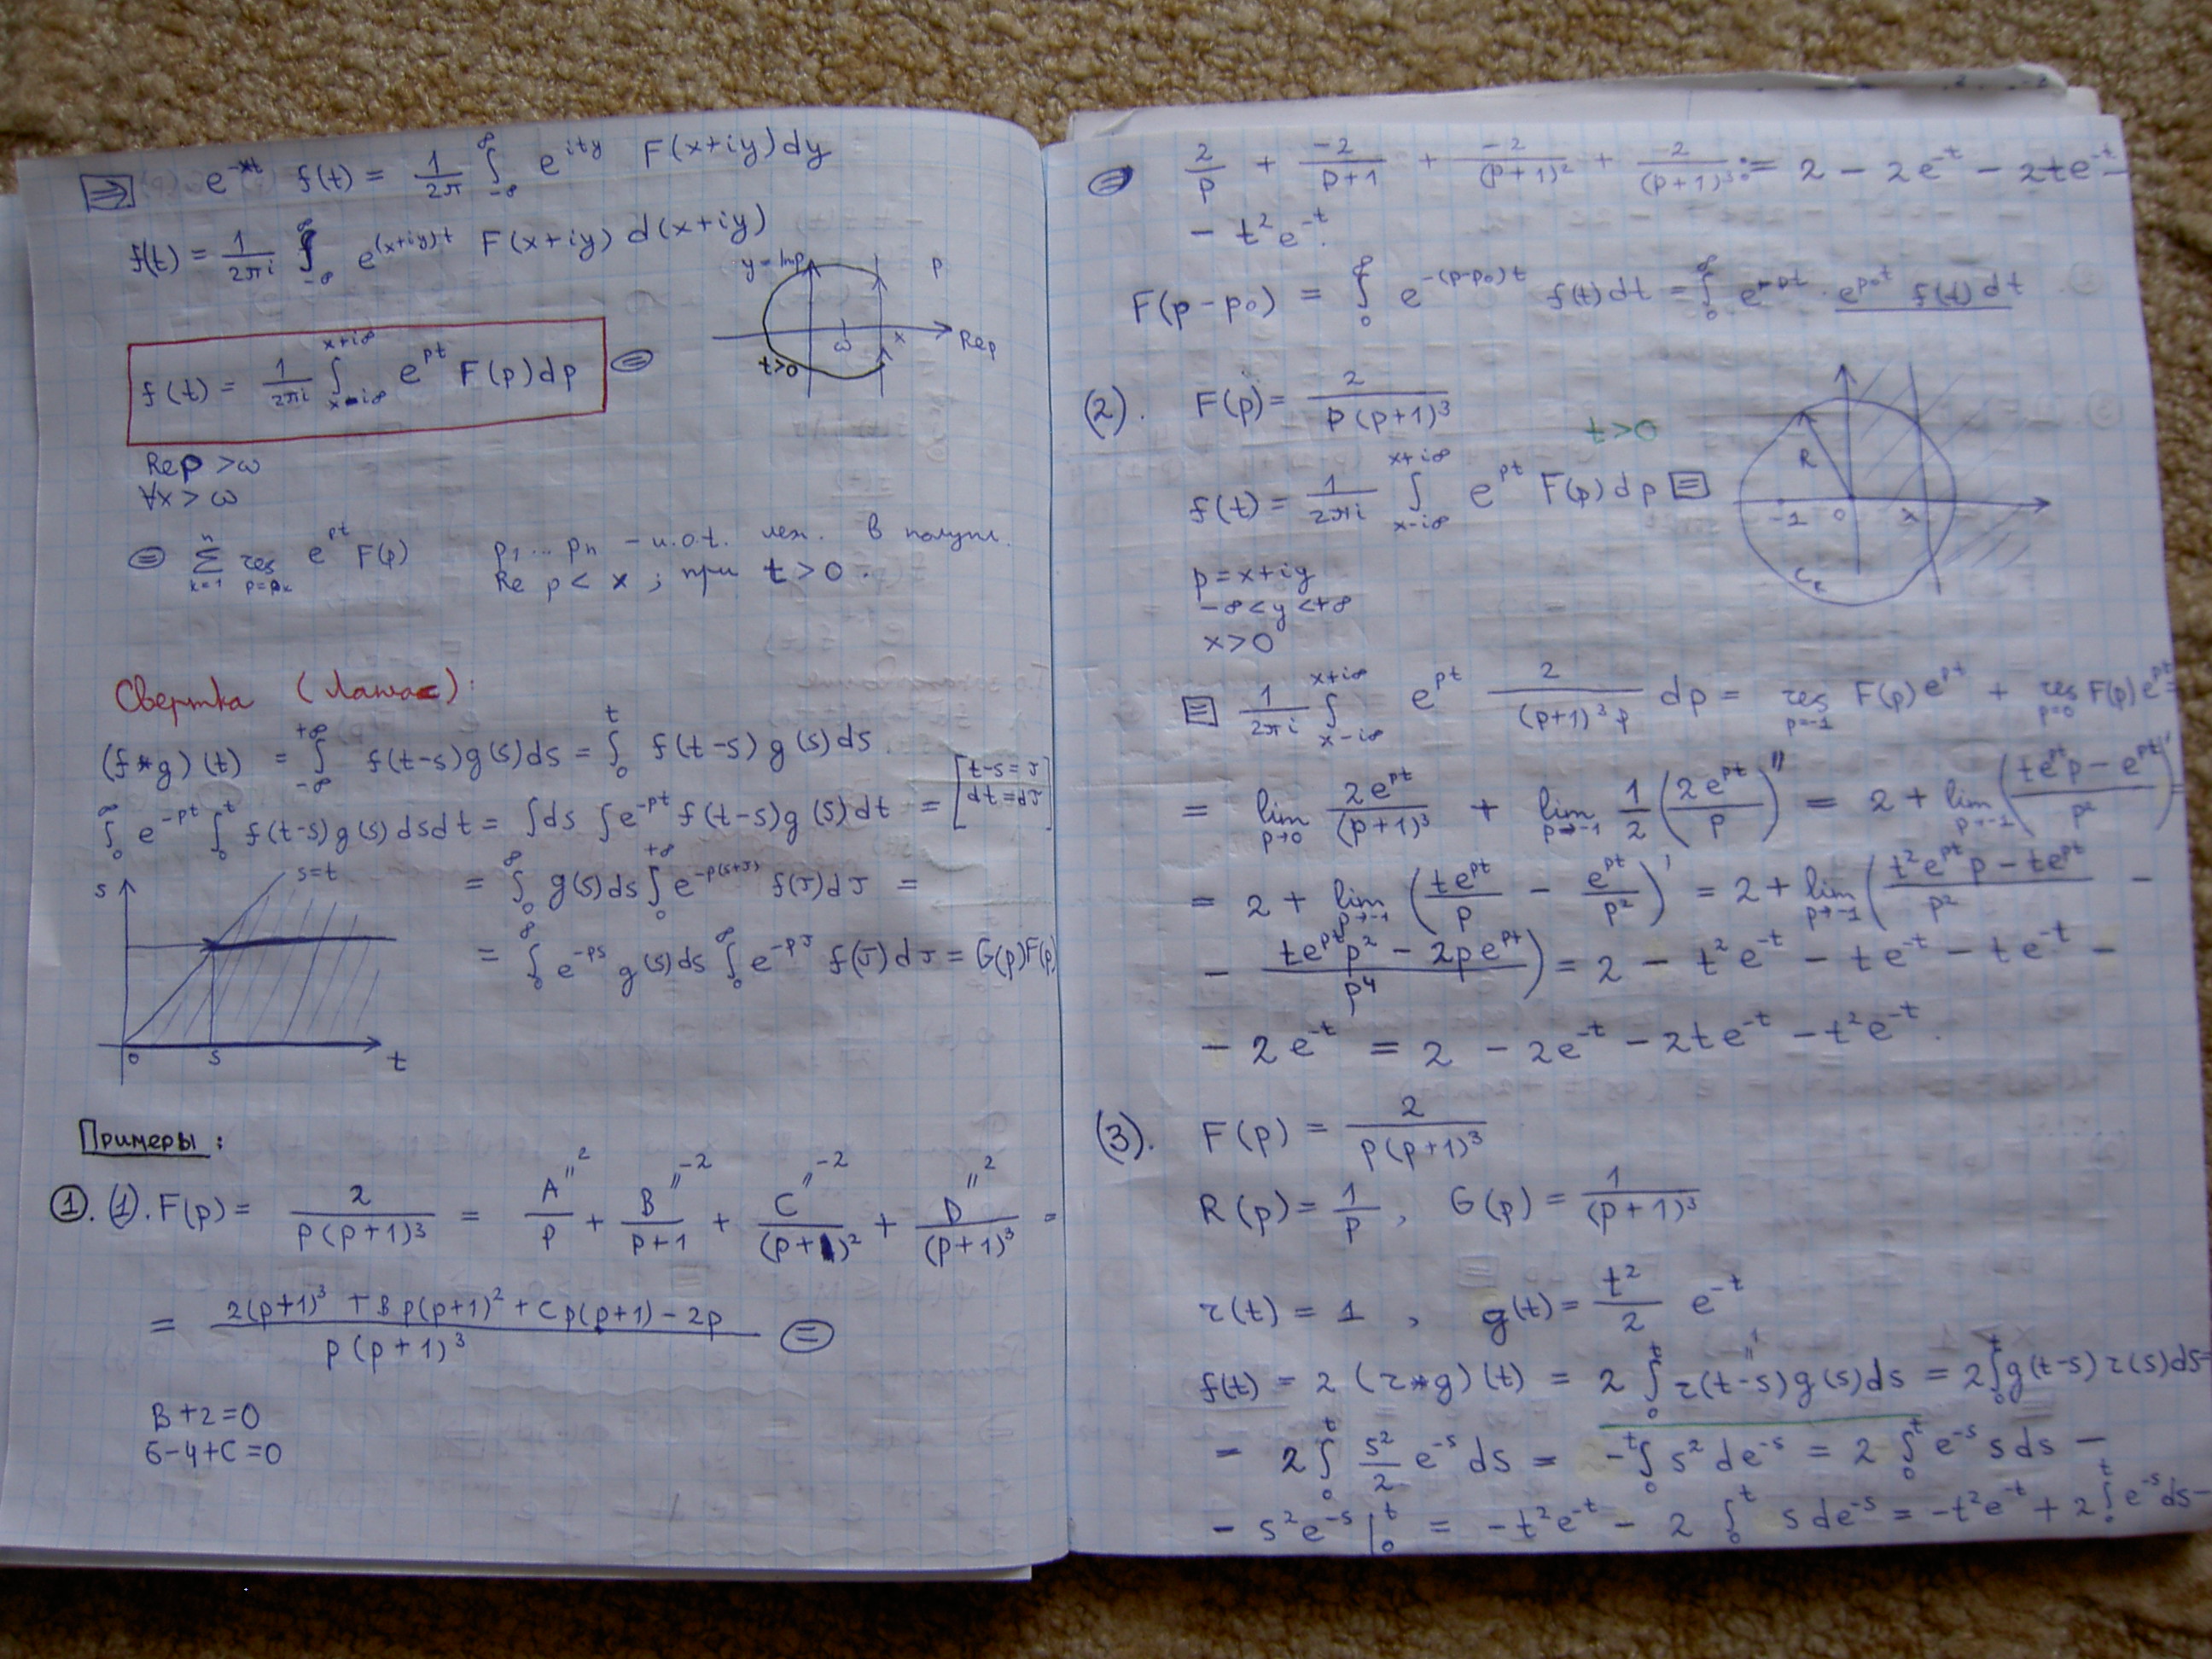 ⇒ e^{-xt} f(t) = \frac{1}{2π} ∫_{-∞}^{∞} e^{ity} F(x+iy)dy
f(t) = \frac{1}{2πi} ∫_{-∞}^{∞} e^{(x+iy)t} F(x+iy) d(x+iy)
y=Imp
p
ω
x
Rep
t>0
f(t) = \frac{1}{2πi} ∫_{x-i∞}^{x+i∞} e^{pt} F(p)dp ⊜
Rep >ω
∀x > ω
⊜ ∑_{k=1}^{n} res_{p=p_k} e^{pt} F(p) p₁...pₙ - и.о.т. леж. в полупл.
Re p < x ; при t > 0 .
Свертка (Лаплас):
(f*g)(t) = ∫_{-∞}^{+∞} f(t-s)g(s)ds = ∫_{0}^{t} f(t-s)g(s)ds
∫_{0}^{∞} e^{-pt} ∫_{0}^{t} f(t-s)g(s)dsdt = ∫ds ∫e^{-pt} f(t-s)g(s)dt = [t-s=τ
dt=dτ]
= ∫_{0}^{∞} g(s)ds ∫_{0}^{+∞} e^{-p(s+τ)} f(τ)dτ =
= ∫_{0}^{∞} e^{-ps} g(s)ds ∫_{0}^{∞} e^{-pτ} f(τ)dτ = G(p)F(p)
s
s=t
0
s
t
Примеры:
①. (1). F(p) = \frac{2}{p(p+1)^3} = \frac{A^{"2}}{p} + \frac{B^{"-2}}{p+1} + \frac{C^{"-2}}{(p+1)^2} + \frac{D^{"2}}{(p+1)^3} =
= \frac{2(p+1)^3 + Bp(p+1)^2 + Cp(p+1) - 2p}{p(p+1)^3} ⊜
B+2=0
6-4+C=0
⊜ \frac{2}{p} + \frac{-2}{p+1} + \frac{-2}{(p+1)^2} + \frac{-2}{(p+1)^3} := 2 - 2e^{-t} - 2te^{-t} -
- t²e^{-t}.
F(p-p₀) = ∫_{0}^{∞} e^{-(p-p₀)t} f(t)dt = ∫_{0}^{∞} e^{-pt} · e^{p₀t} f(t)dt
(2). F(p) = \frac{2}{p(p+1)^3}
t>0
R
-1
0
x
C_R
f(t) = \frac{1}{2πi} ∫_{x-i∞}^{x+i∞} e^{pt} F(p)dp ⊟
p=x+iy
-∞<y<+∞
x>0
⊟ \frac{1}{2πi} ∫_{x-i∞}^{x+i∞} e^{pt} \frac{2}{(p+1)^3 p} dp = res_{p=-1} F(p)e^{pt} + res_{p=0} F(p)e^{pt} =
= lim_{p→0} \frac{2e^{pt}}{(p+1)^3} + lim_{p→-1} \frac{1}{2} (\frac{2e^{pt}}{p})'' = 2 + lim_{p→-1} (\frac{te^{pt}p - e^{pt}}{p²})' =
= 2 + lim_{p→-1} (\frac{te^{pt}}{p} - \frac{e^{pt}}{p²})' = 2 + lim_{p→-1} (\frac{t²e^{pt}p - te^{pt}}{p²} -
- \frac{te^{pt}p² - 2pe^{pt}}{p⁴}) = 2 - t²e^{-t} - te^{-t} - te^{-t} -
- 2e^{-t} = 2 - 2e^{-t} - 2te^{-t} - t²e^{-t}.
(3). F(p) = \frac{2}{p(p+1)^3}
R(p) = \frac{1}{p}, G(p) = \frac{1}{(p+1)^3}
r(t) = 1 , g(t) = \frac{t²}{2} e^{-t}
f(t) = 2(r*g)(t) = 2 ∫_{0}^{t} r(t-s)^{"1} g(s)ds = 2∫_{0}^{t} g(t-s) r(s)ds =
= 2∫_{0}^{t} \frac{s²}{2} e^{-s}ds = -∫_{0}^{t} s²de^{-s} = 2 ∫_{0}^{t} e^{-s}sds -
- s²e^{-s} |_{0}^{t} = -t²e^{-t} - 2 ∫_{0}^{t} sde^{-s} = -t²e^{-t} + 2∫_{0}^{t} e^{-s}ds -